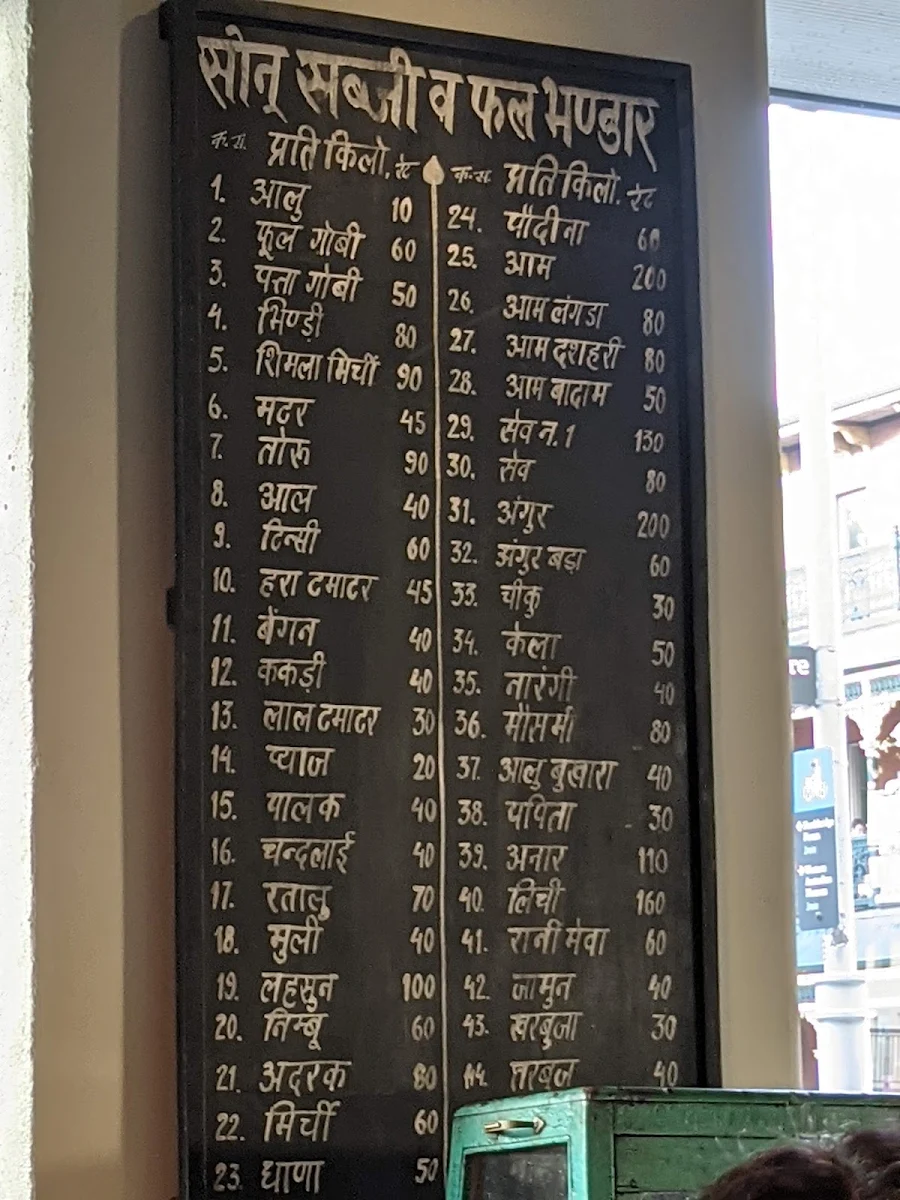 सोनू सब्जी व फल भण्डार
क्र.सं. प्रति किलो. रेट
1. आलु 10
2. फूल गोबी 60
3. पत्ता गोबी 50
4. भिण्डी 80
5. शिमला मिर्ची 90
6. मटर 45
7. तोरू 90
8. आल 40
9. टिन्सी 60
10. हरा टमाटर 45
11. बेंगन 40
12. ककड़ी 40
13. लाल टमाटर 30
14. प्याज 20
15. पालक 40
16. चन्दलाई 40
17. रतालु 70
18. मुली 40
19. लहसुन 100
20. निम्बू 60
21. अदरक 80
22. मिर्ची 60
23. धाणा 50
क्र.सं. प्रति किलो. रेट
24. पौदीना 60
25. आम 200
26. आम लंगडा 80
27. आम दशहरी 80
28. आम बादाम 50
29. सेव न. 1 130
30. सेव 80
31. अंगुर 200
32. अंगुर बड़ा 60
33. चीकु 30
34. केला 50
35. नारंगी 40
36. मौसमी 80
37. आलु बुखारा 40
38. पपिता 30
39. अनार 110
40. लिची 160
41. रानी मेवा 60
42. जामुन 40
43. खरबुजा 30
44. तरबुज 40
re